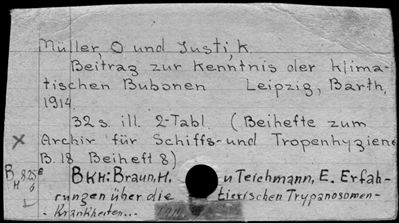 Müller, O und Justi, K.
Beitrag zur Kenntnis der klima-
tischen Bubonen Leipzig, Barth,
1914.
32 s. ill. 2-Tabl. (Beihefte zum
Archiv für Schiffs- und Tropenhygiene
B. 18 Beiheft 8)
BKH: Braun, H. u Teichmann, E. Erfah-
rungen über die tierischen Trypanosomen-
Krankheiten...